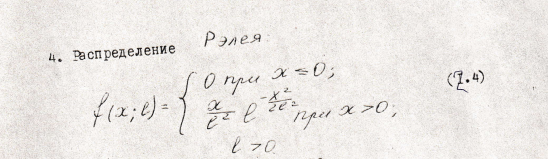 4. Распределение Рэлея
f(x; l) = { 0 при x = 0;
x/l² e^(-x²/2l²) при x > 0; (7.4)
l > 0